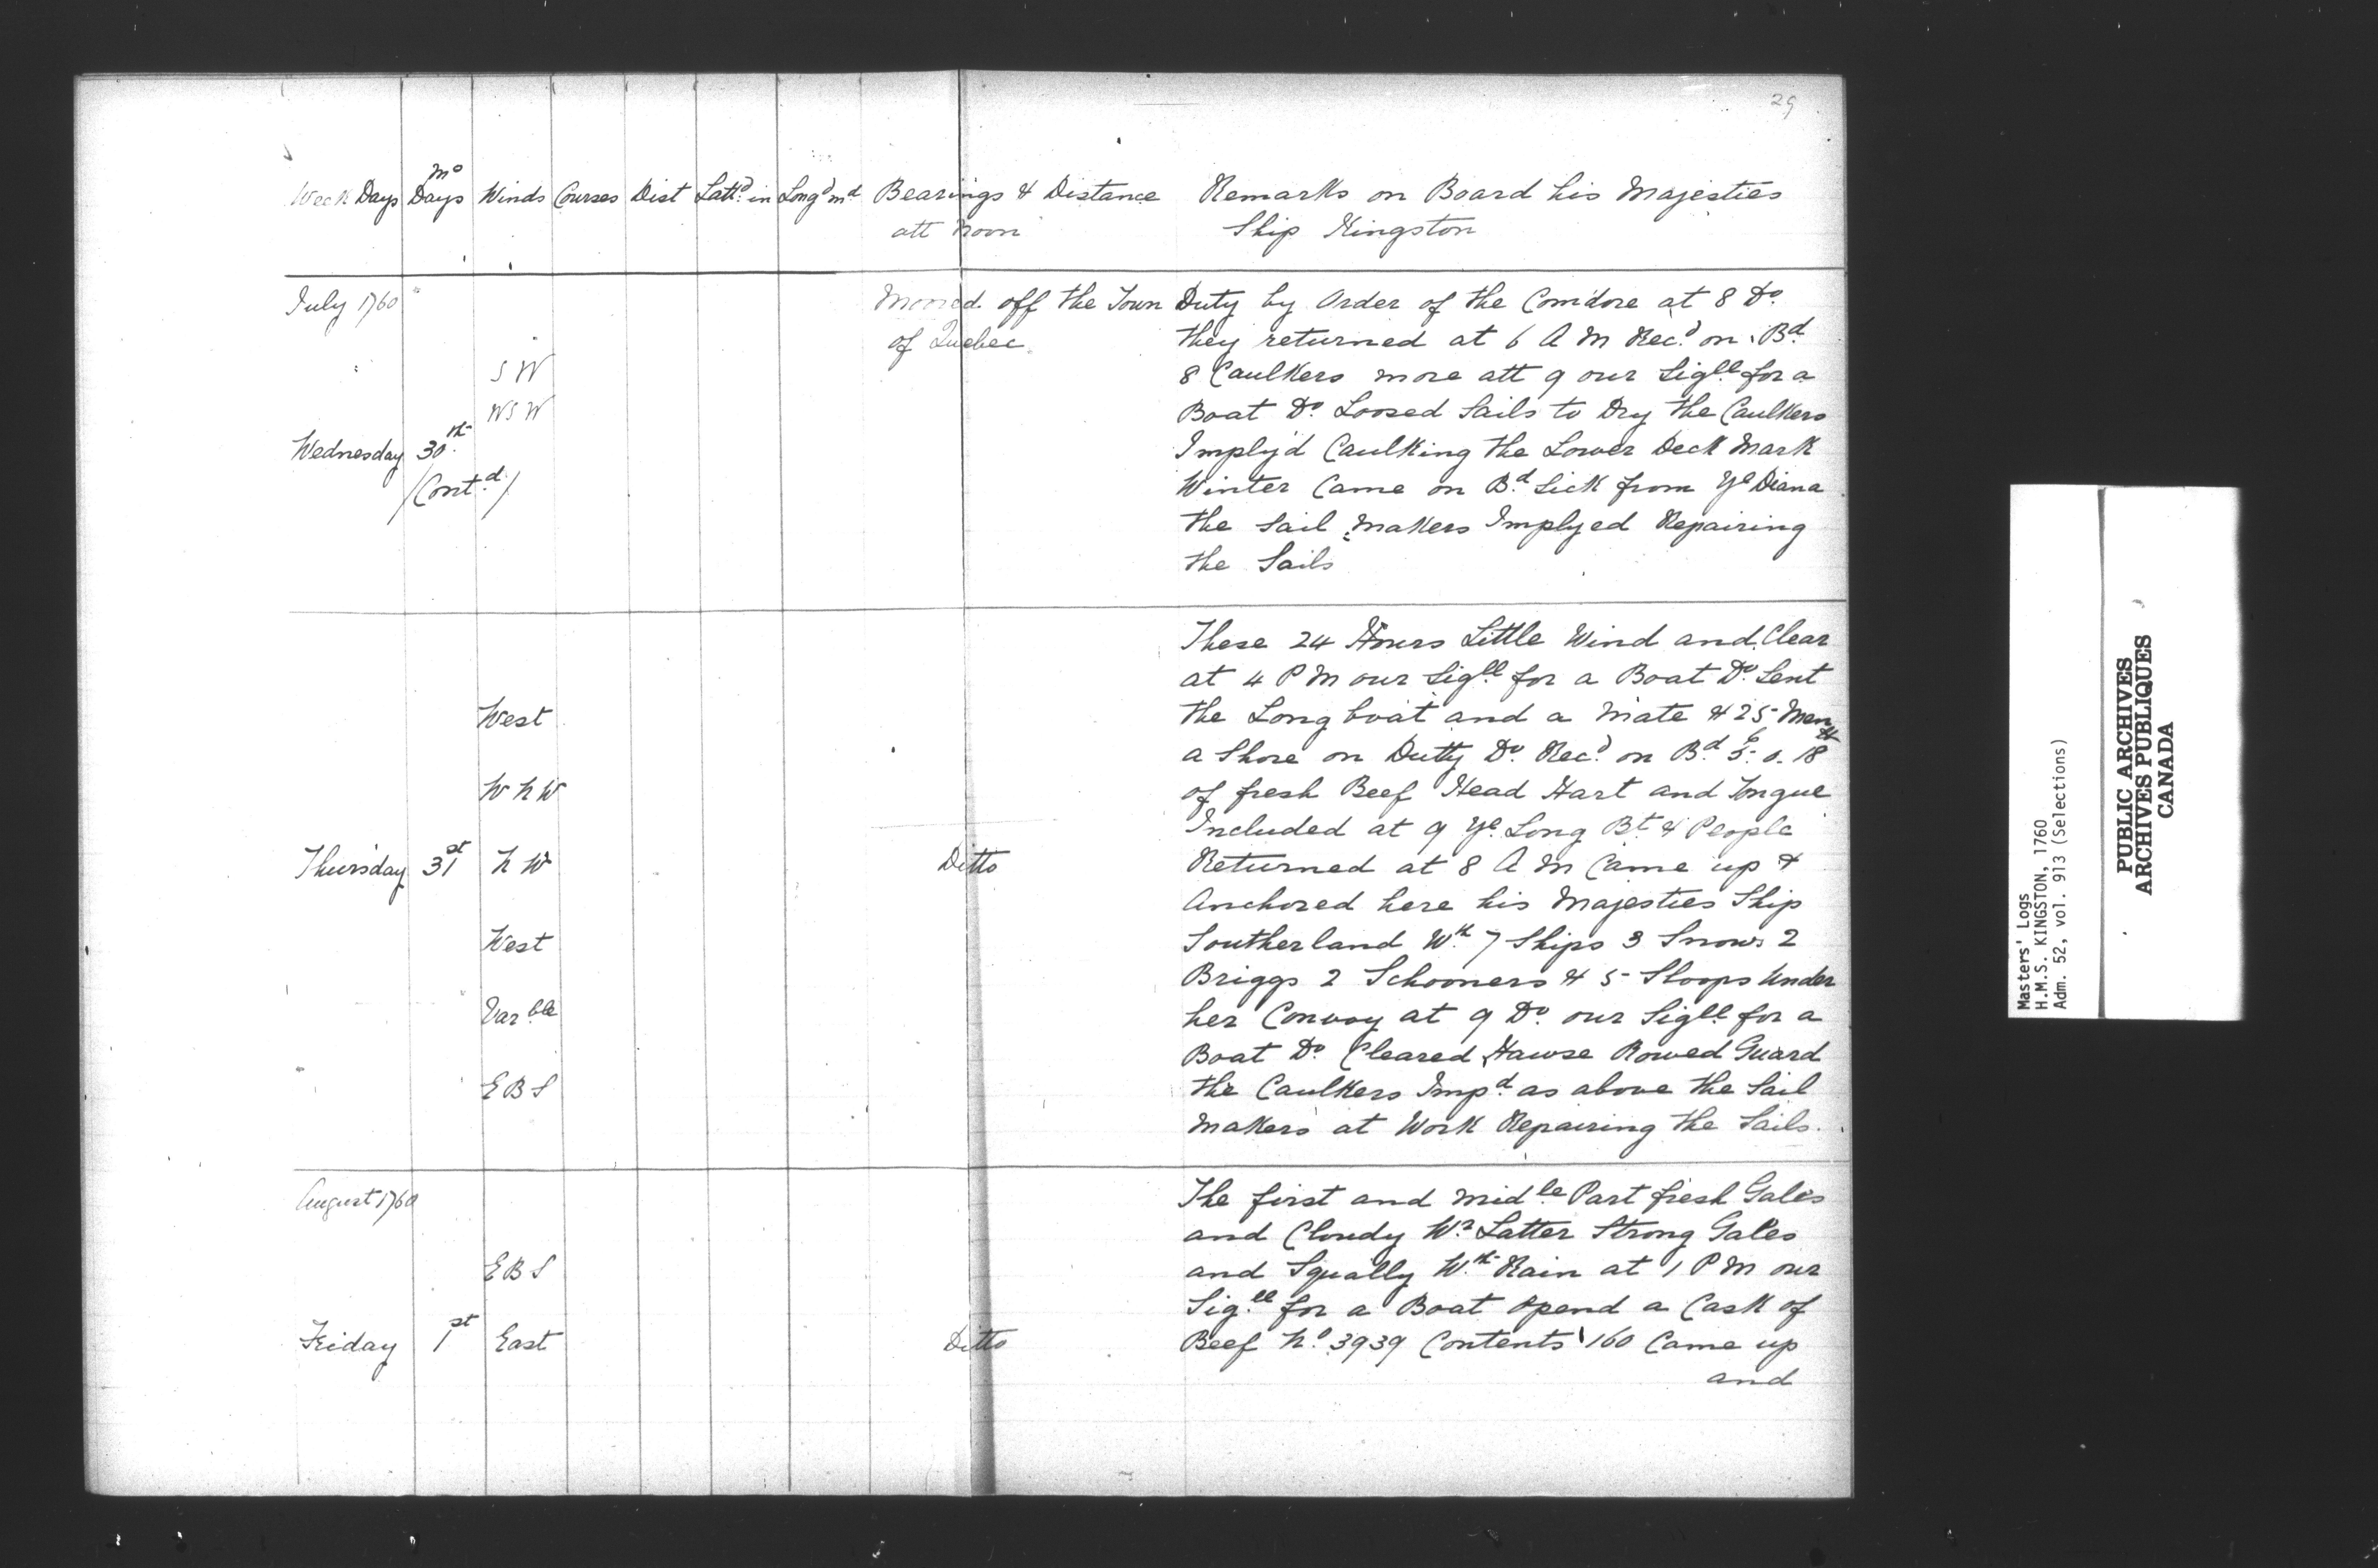 29
Week Days Mo Days Winds Courses Dist Lattd in Longd md Bearings & Distance att Noon
Remarks on Board his Majesties
Ship Kingston
July 1760
Wednesday 30th
(Contd)
S W
WSW
Moored off the Town
of Quebec
Duty by Order of the Comdore at 8 Do
they returned at 6 A M Recd on Bd
8 Caulkers more att 9 our Sigll for a
Boat Do Loosed Sails to Dry the Caulkers
Imply'd Caulking the Lower Deck Mark
Winter Came on Bd Sick from Ye Diana
the Sail Makers Implyed Repairing
the Sails
Thursday 31st
West
W N W
N W
West
Varble
E B S
Ditto
These 24 Hours Little Wind and Clear
at 4 P M our Sigll for a Boat Do Sent
the Long boat and a Mate & 25 Men
a Shore on Dutty Do Recd on Bd 5 0 18
of fresh Beef Head Hart and Tongue
Included at 9 Ye Long Bt & People
Returned at 8 A M Came up &
Anchored here his Majesties Ship
Southerland Wth 7 Ships 3 Snows 2
Briggs 2 Schooners & 5 Sloops Under
her Convoy at 9 Do our Sigll for a
Boat Do Cleared Hawse Rowed Guard
the Caulkers Impd as above the Sail
Makers at Work Repairing the Sails.
August 1760
Friday 1st
E B S
East
Ditto
The first and midle Part fresh Gales
and Cloudy Wr Latter Strong Gales
and Squally Wth Rain at 1 P M our
Sigll for a Boat Opend a Cask of
Beef No 3939 Contents 160 Came up
and
Masters' Logs
H.M.S. KINGSTON, 1760
Adm. 52, vol. 913 (Selections)
PUBLIC ARCHIVES
ARCHIVES PUBLIQUES
CANADA